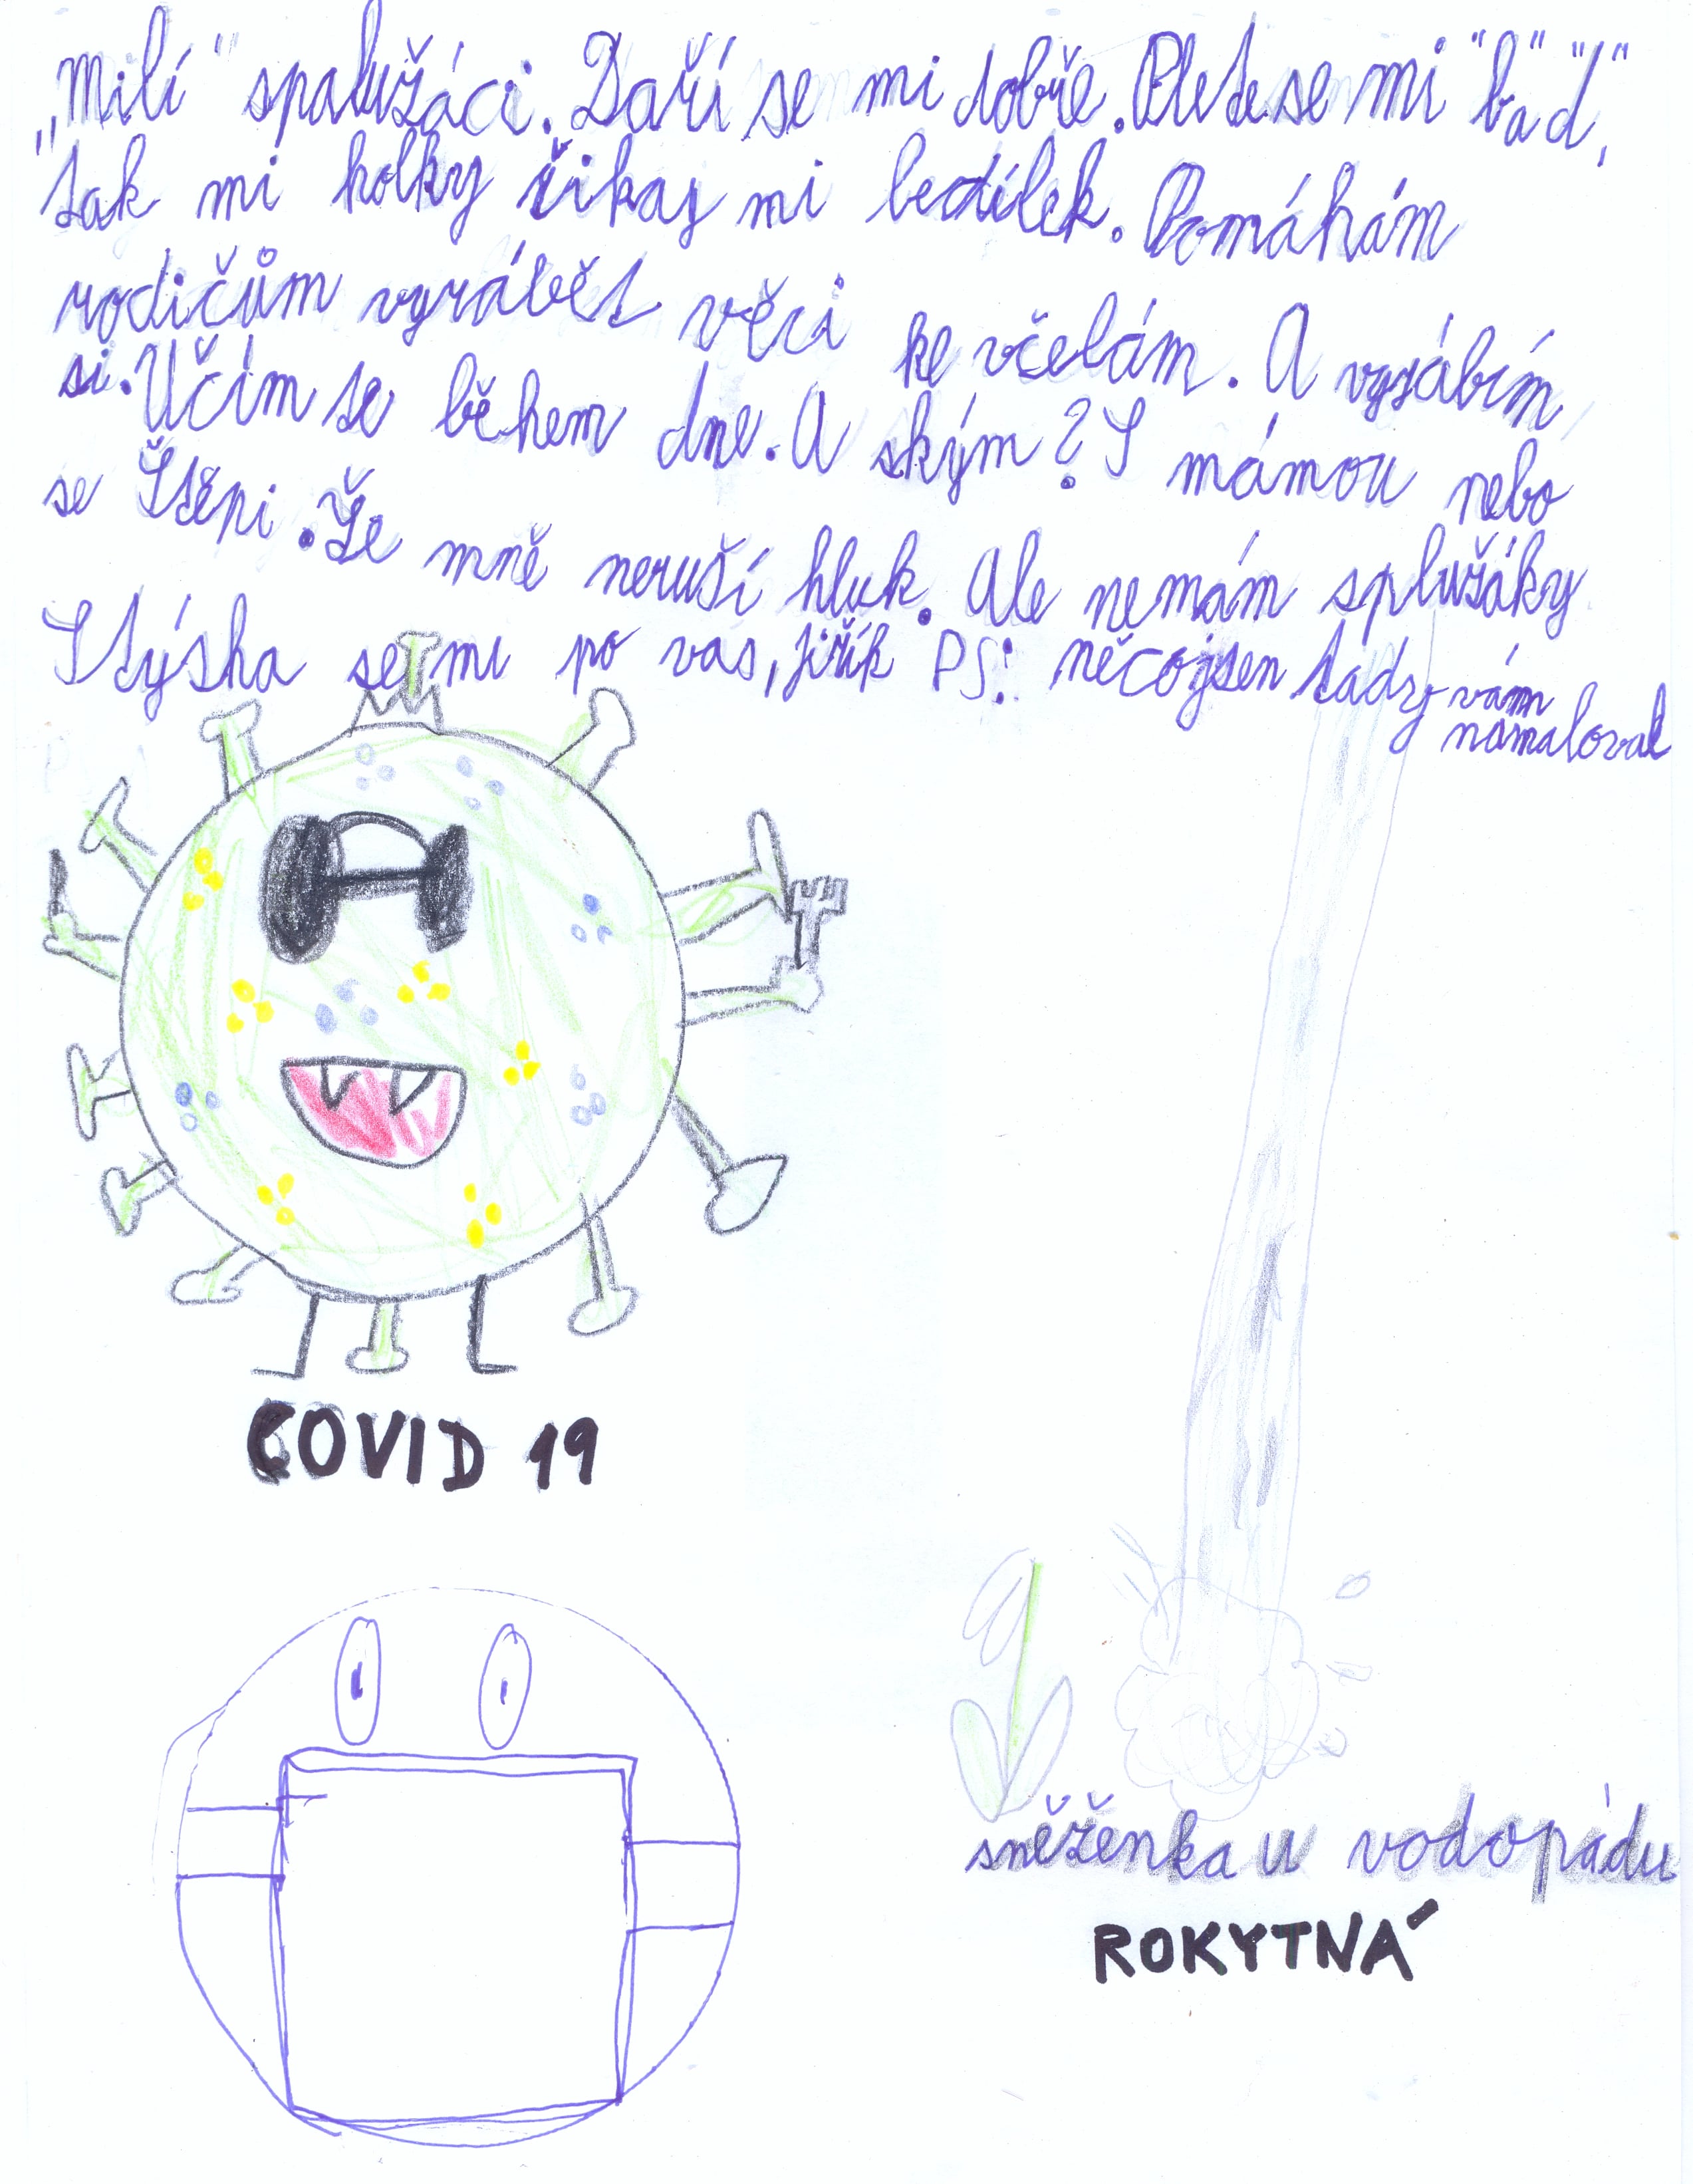 „Milí" spalužáci. Daří se mi dobře. Plete se mi "b" a "d",
tak mi holky říkaj mi bedílek. Pomáhám
rodičům vyrábět věci ke včelám. A vyrábím
si. Učím se během dne. A ským? S mámou nebo
se Štěpi. Že mně neruší hluk. Ale nemám splužáky
Stýska se mi po vas, jiřík PS: něco jsen tady vám
namaloval
COVID 19
sněženka u vodopádu
ROKYTNÁ